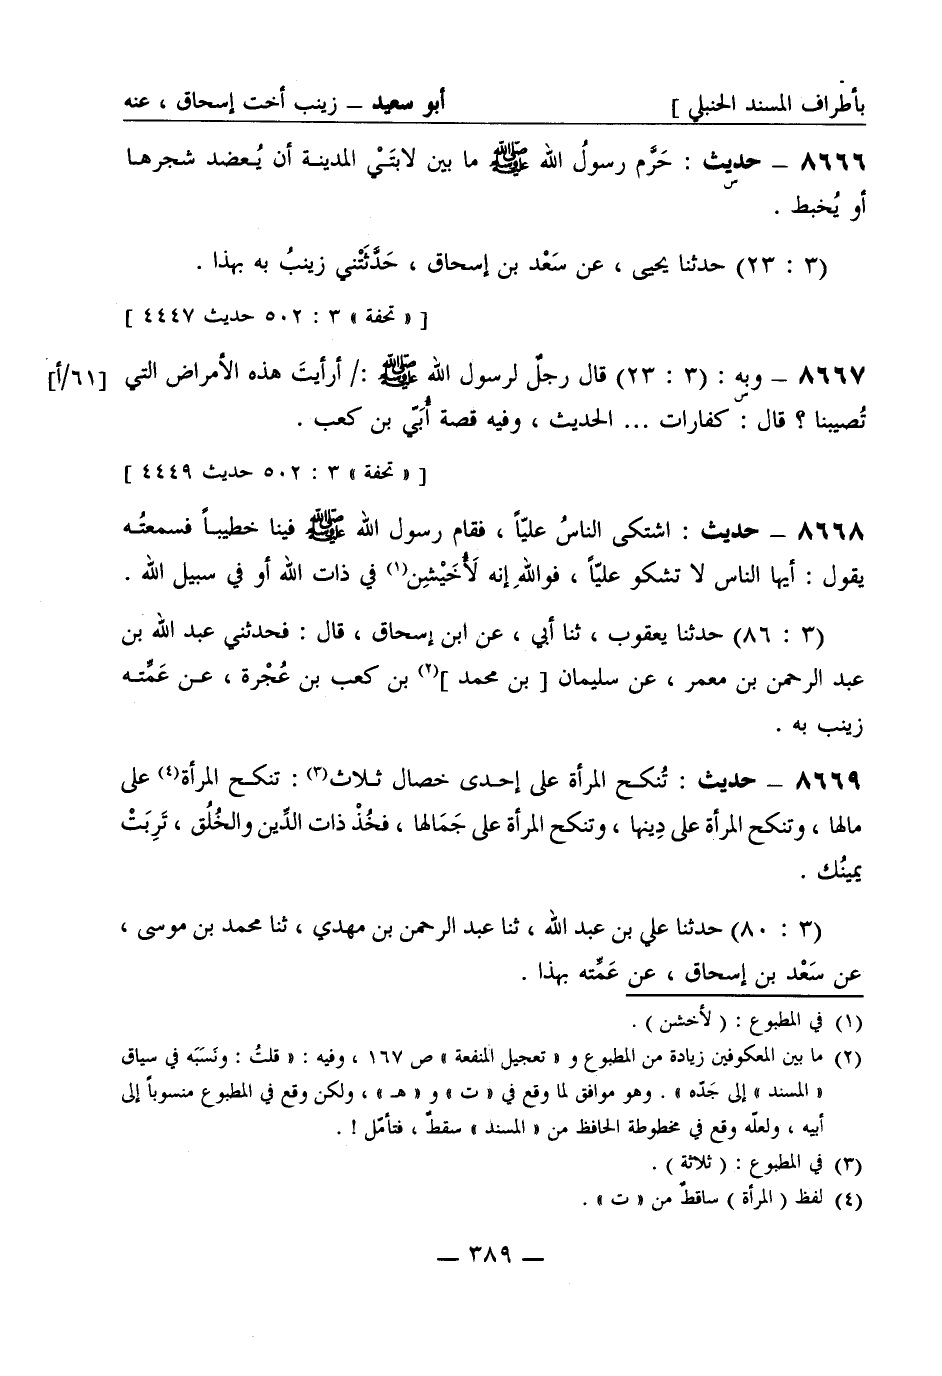 بأطراف المسند الحنبلي ] أبو سعيد – زينب أخت إسحاق ، عنه
٨٦٦٦ – حديث : حَرَّم رسولُ الله ﷺ ما بين لابتَيْ المدينة أن يُعضد شجرها
س
أو يُخبط .
(٣ : ٢٣) حدثنا يحيى ، عن سَعْد بن إسحاق ، حَدَّثَتْني زينبُ به بهذا .
[ « تحفة » ٣ : ٥٠٢ حديث ٤٤٤٧ ]
٨٦٦٧ – وبه : (٣ : ٢٣) قال رجلٌ لرسول الله ﷺ :/ أرأيتَ هذه الأمراض التي [٦١/أ]
س
تُصيبنا ؟ قال : كفارات ... الحديث ، وفيه قصة أُبَيّ بن كعب .
[ « تحفة » ٣ : ٥٠٢ حديث ٤٤٤٩ ]
٨٦٦٨ – حديث : اشتكى الناسُ عليّاً ، فقام رسول الله ﷺ فينا خطيباً فسمعتُه
يقول : أيها الناس لا تشكو عليّاً ، فواللهِ إنه لَأُخَيْشِن(١) في ذات الله أو في سبيل الله .
(٣ : ٨٦) حدثنا يعقوب ، ثنا أبي ، عن ابن إسحاق ، قال : فحدثني عبد الله بن
عبد الرحمن بن معمر ، عن سليمان [ بن محمد ](٢) بن كعب بن عُجْرة ، عن عَمَّته
زينب به .
٨٦٦٩ – حديث : تُنكح المرأة على إحدى خصال ثلاث(٣) : تنكح المرأة(٤) على
مالها ، وتنكح المرأة على دِينها ، وتنكح المرأة على جَمَالها ، فخُذْ ذات الدِّين والخُلُق ، تَرِبَتْ
يمينُك .
(٣ : ٨٠) حدثنا علي بن عبد الله ، ثنا عبد الرحمن بن مهدي ، ثنا محمد بن موسى ،
عن سَعْد بن إسحاق ، عن عَمَّته بهذا .
(١) في المطبوع : ( لأخشن ) .
(٢) ما بين المعكوفين زيادة من المطبوع و « تعجيل المنفعة » ص ١٦٧ ، وفيه : « قلتُ : ونَسَبَه في سياق
« المسند » إلى جَدّه » . وهو موافق لما وقع في « ت » و « هـ » ، ولكن وقع في المطبوع منسوباً إلى
أبيه ، ولعلّه وقع في مخطوطة الحافظ من « المسند » سقطٌ ، فتأمّل ! .
(٣) في المطبوع : ( ثلاثة ) .
(٤) لفظ ( المرأة ) ساقطٌ من « ت » .
– ٣٨٩ –